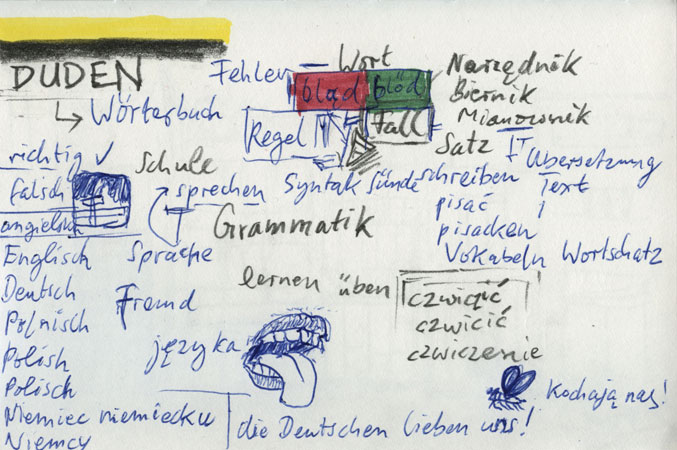 DUDEN
Wörterbuch
Fehler
Wort
błąd
blöd
Narzędnik
Biernik
Mianownik
Regel
Fall
Satz
richtig ✓
falsch
Schule
sprechen
Syntax
Sünde
schreiben
Übersetzung
Text
pisać
pisacken
Grammatik
Vokabeln Wortschatz
Englisch
Deutsch
Polnisch
Polish
Polisch
Niemiec niemiecku
Niemcy
Sprache
Fremd
języka
lernen üben
czwicić
czwiczenie
Kochają nas!
die Deutschen lieben uns!